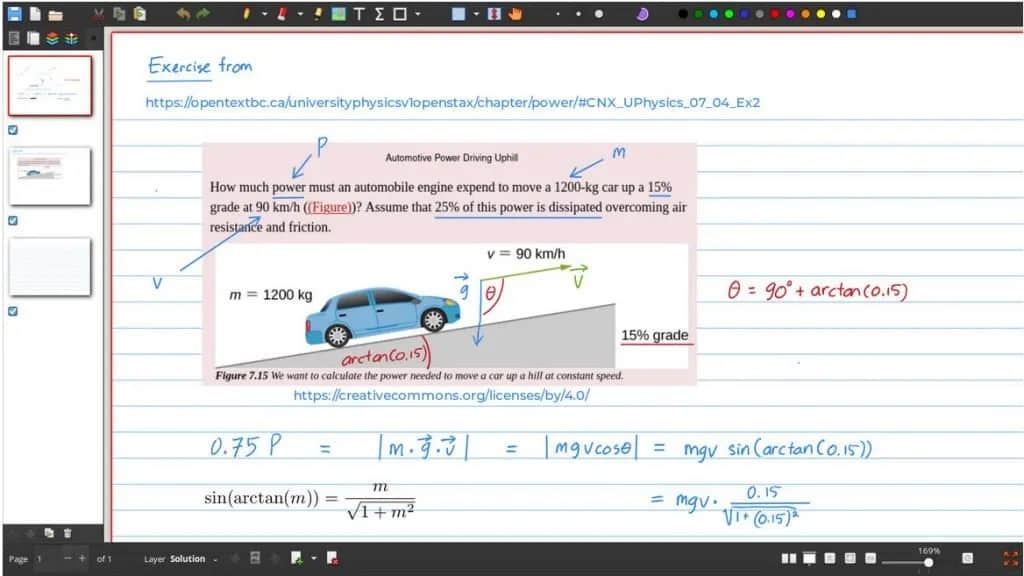 Exercise from
https://opentextbc.ca/universityphysicsv1openstax/chapter/power/#CNX_UPhysics_07_04_Ex2
P
m
Automotive Power Driving Uphill
How much power must an automobile engine expend to move a 1200-kg car up a 15%
grade at 90 km/h ((Figure))? Assume that 25% of this power is dissipated overcoming air
resistance and friction.
v = 90 km/h
v
m = 1200 kg
g⃗
θ
v⃗
θ = 90° + arctan(0.15)
15% grade
arctan(0.15)
Figure 7.15 We want to calculate the power needed to move a car up a hill at constant speed.
https://creativecommons.org/licenses/by/4.0/
0.75 P = |m · g⃗ · v⃗| = |mgvcosθ| = mgv sin(arctan(0.15))
sin(arctan(m)) = m / √(1 + m²)
= mgv · 0.15 / √(1 + (0.15)²)
Page 1 of 1 Layer Solution 169%